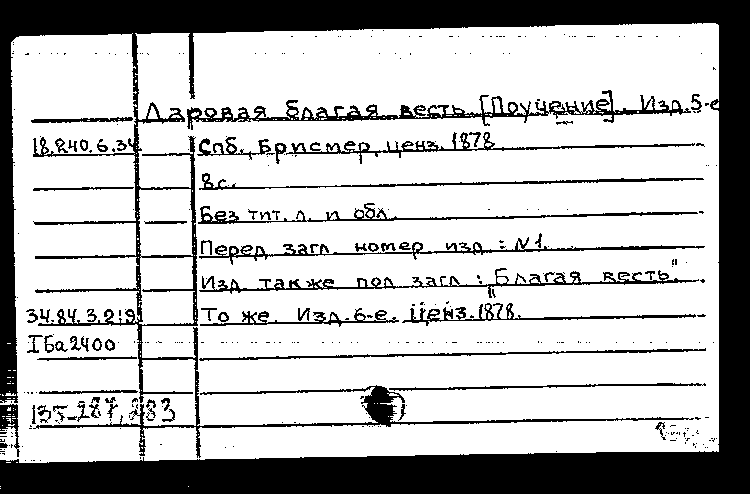 Даровая благая весть [Поучение]. Изд. 5-е
18.240.6.34 Спб., Брисмер, ценз. 1878
8с.
Без тит. л. и обл.
Перед загл. номер изд.: N1.
Изд. также под загл.: "Благая весть".
34.84.3.219 То же. Изд. 6-е. ценз. 1878.
IБа2400
135-287, 283